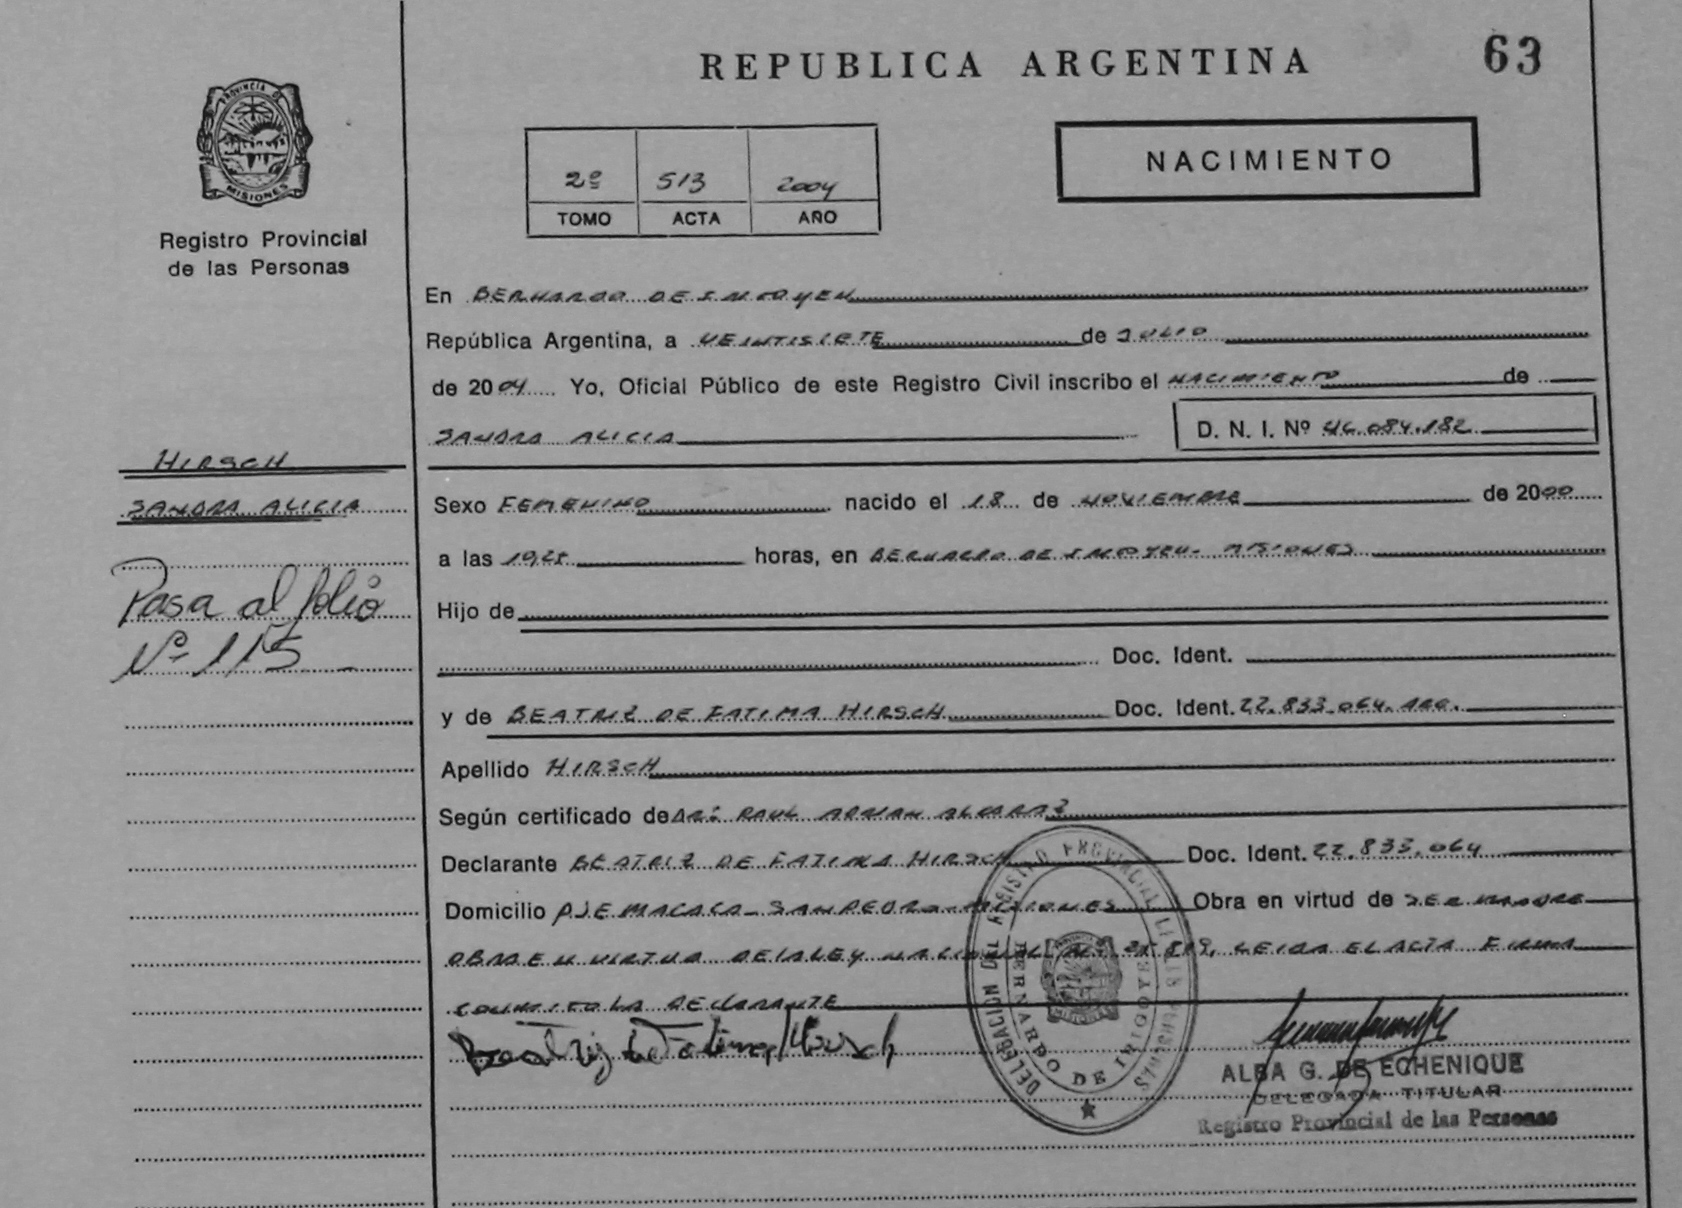 REPUBLICA ARGENTINA
63
PROVINCIA DE
MISIONES
Registro Provincial
de las Personas
2º 513 2004
TOMO ACTA AÑO
NACIMIENTO
En BERNARDO DE IRIGOYEN
República Argentina, a VEINTISIETE de JULIO
de 2004 Yo, Oficial Público de este Registro Civil inscribo el NACIMIENTO de
SANDRA ALICIA
D. N. I. Nº 46.084.182
HIRSCH
SANDRA ALICIA
Pasa al folio
Nº 115
Sexo FEMENINO nacido el 18 de NOVIEMBRE de 2000
a las 19,25 horas, en BERNARDO DE IRIGOYEN - MISIONES
Hijo de
Doc. Ident.
y de BEATRIZ DE FATIMA HIRSCH Doc. Ident. 22.833.064. ARG.
Apellido HIRSCH
Según certificado de DR: RAUL ADRIAN ALVAREZ
Declarante BEATRIZ DE FATIMA HIRSCH Doc. Ident. 22.833.064
Domicilio PJE MACACA - SAN PEDRO - MISIONES Obra en virtud de SER MADRE
OBRA EN VIRTUD DE LA LEY NACIONAL Nº 25.819. LEIDA EL ACTA FIRMA
CONMIGO LA DECLARANTE
Beatriz de Fatima Hirsch
DELEGACION DEL REGISTRO PROVINCIAL DE LAS PERSONAS
BERNARDO DE IRIGOYEN
MISIONES
ALBA G. DE ECHENIQUE
DELEGADA TITULAR
Registro Provincial de las Personas